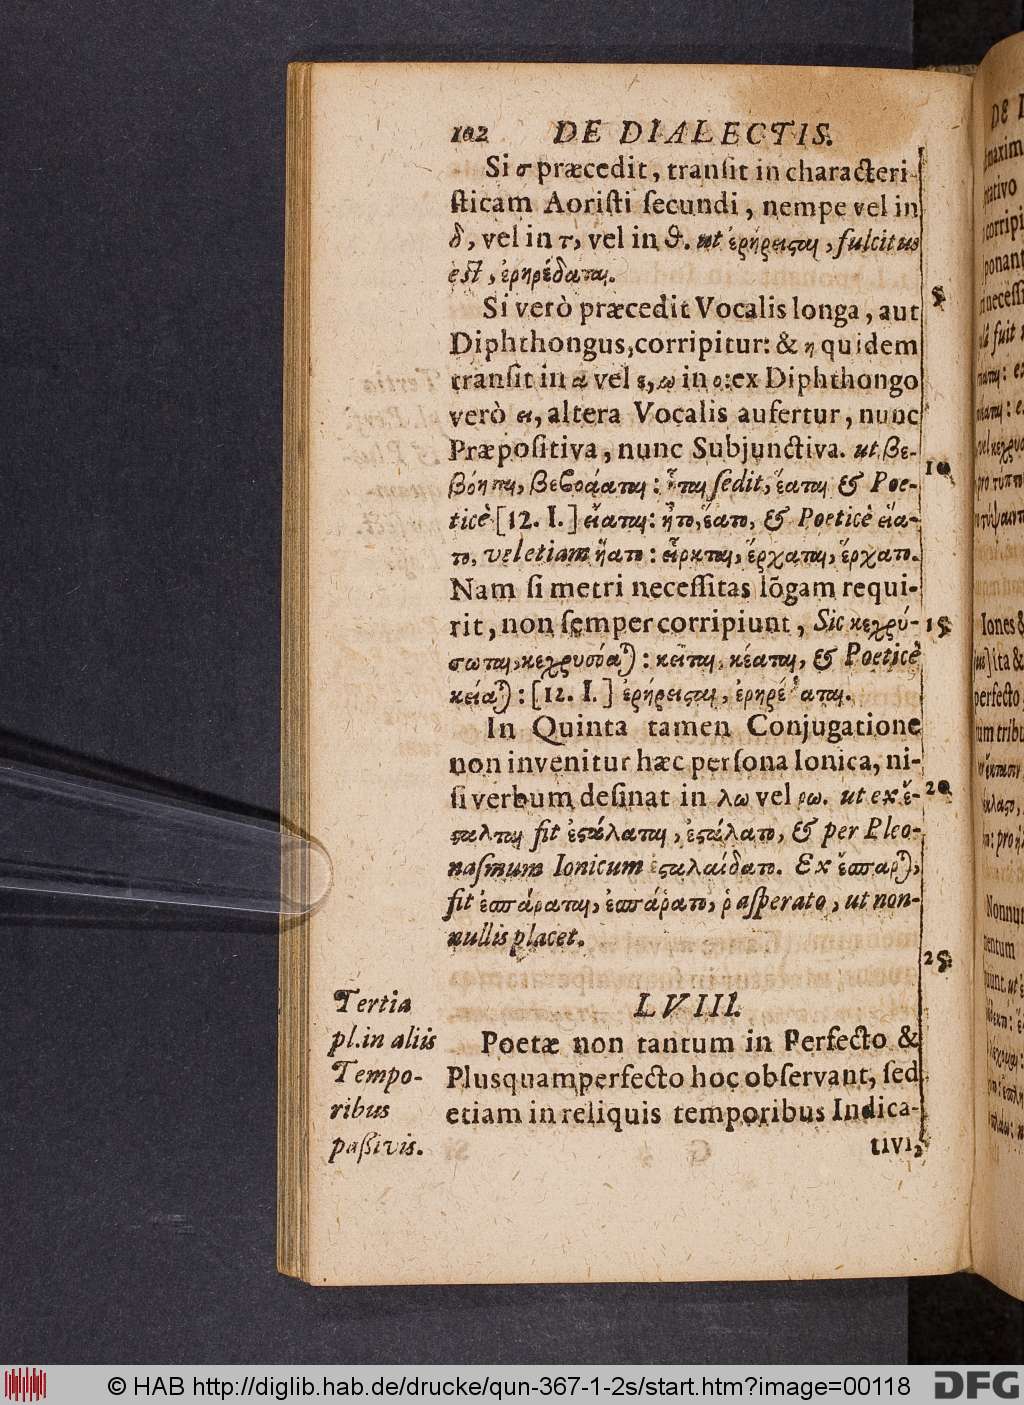 102 DE DIALECTIS.
Si σ præcedit, transit in characteri-
sticam Aoristi secundi, nempe vel in
δ, vel in τ, vel in ϑ. ut ἐρήρειςαι, fulcitus
est, ἐρηρέδαται.
Si verò præcedit Vocalis longa, aut
5
Diphthongus, corripitur: & η quidem
transit in α vel ε, ω in ο: ex Diphthongo
verò ει, altera Vocalis aufertur, nunc
Præpositiva, nunc Subjunctiva. ut βε-
10
βόηται, βεβοάαται: ἧται sedit, ἕαται & Poe-
ticè [12. I.] εἵαται: ἧτο, ἕατο, & Poeticè εἵα-
το, vel etiam ἥατο: εἶρκται, ἔρχαται, ἔρχατο.
Nam si metri necessitas lõgam requi-
rit, non semper corripiunt, Sic κεχρύ-
15
σωται, κεχρυσόαται: κεῖται, κέαται, & Poeticè
κείαται: [12. I.] ἐρήρειςαι, ἐρηρέαται.
In Quinta tamen Conjugatione
non invenitur hæc persona Ionica, ni-
si verbum desinat in λω vel ρω. ut ex ἔ-
20
ςαλται fit ἐςάλαται, ἐςάλατο, & per Pleo-
nasmum Ionicum ἐςαλαίδατο. Ex ἔσπαρται,
fit ἐσπάραται, ἐσπάρατο, ῥ asperato, ut non-
nullis placet.
25
LVIII.
Tertia
pl. in aliis
Tempo-
ribus
passivis.
Poetæ non tantum in Perfecto &
Plusquamperfecto hoc observant, sed
etiam in reliquis temporibus Indica-
tivi,
DE
© HAB http://diglib.hab.de/drucke/qun-367-1-2s/start.htm?image=00118
DFG